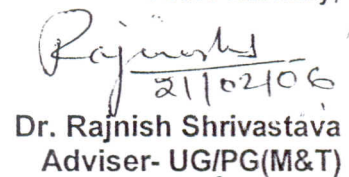 Rajnish
21/02/06
Dr. Rajnish Shrivastava
Adviser- UG/PG(M&T)